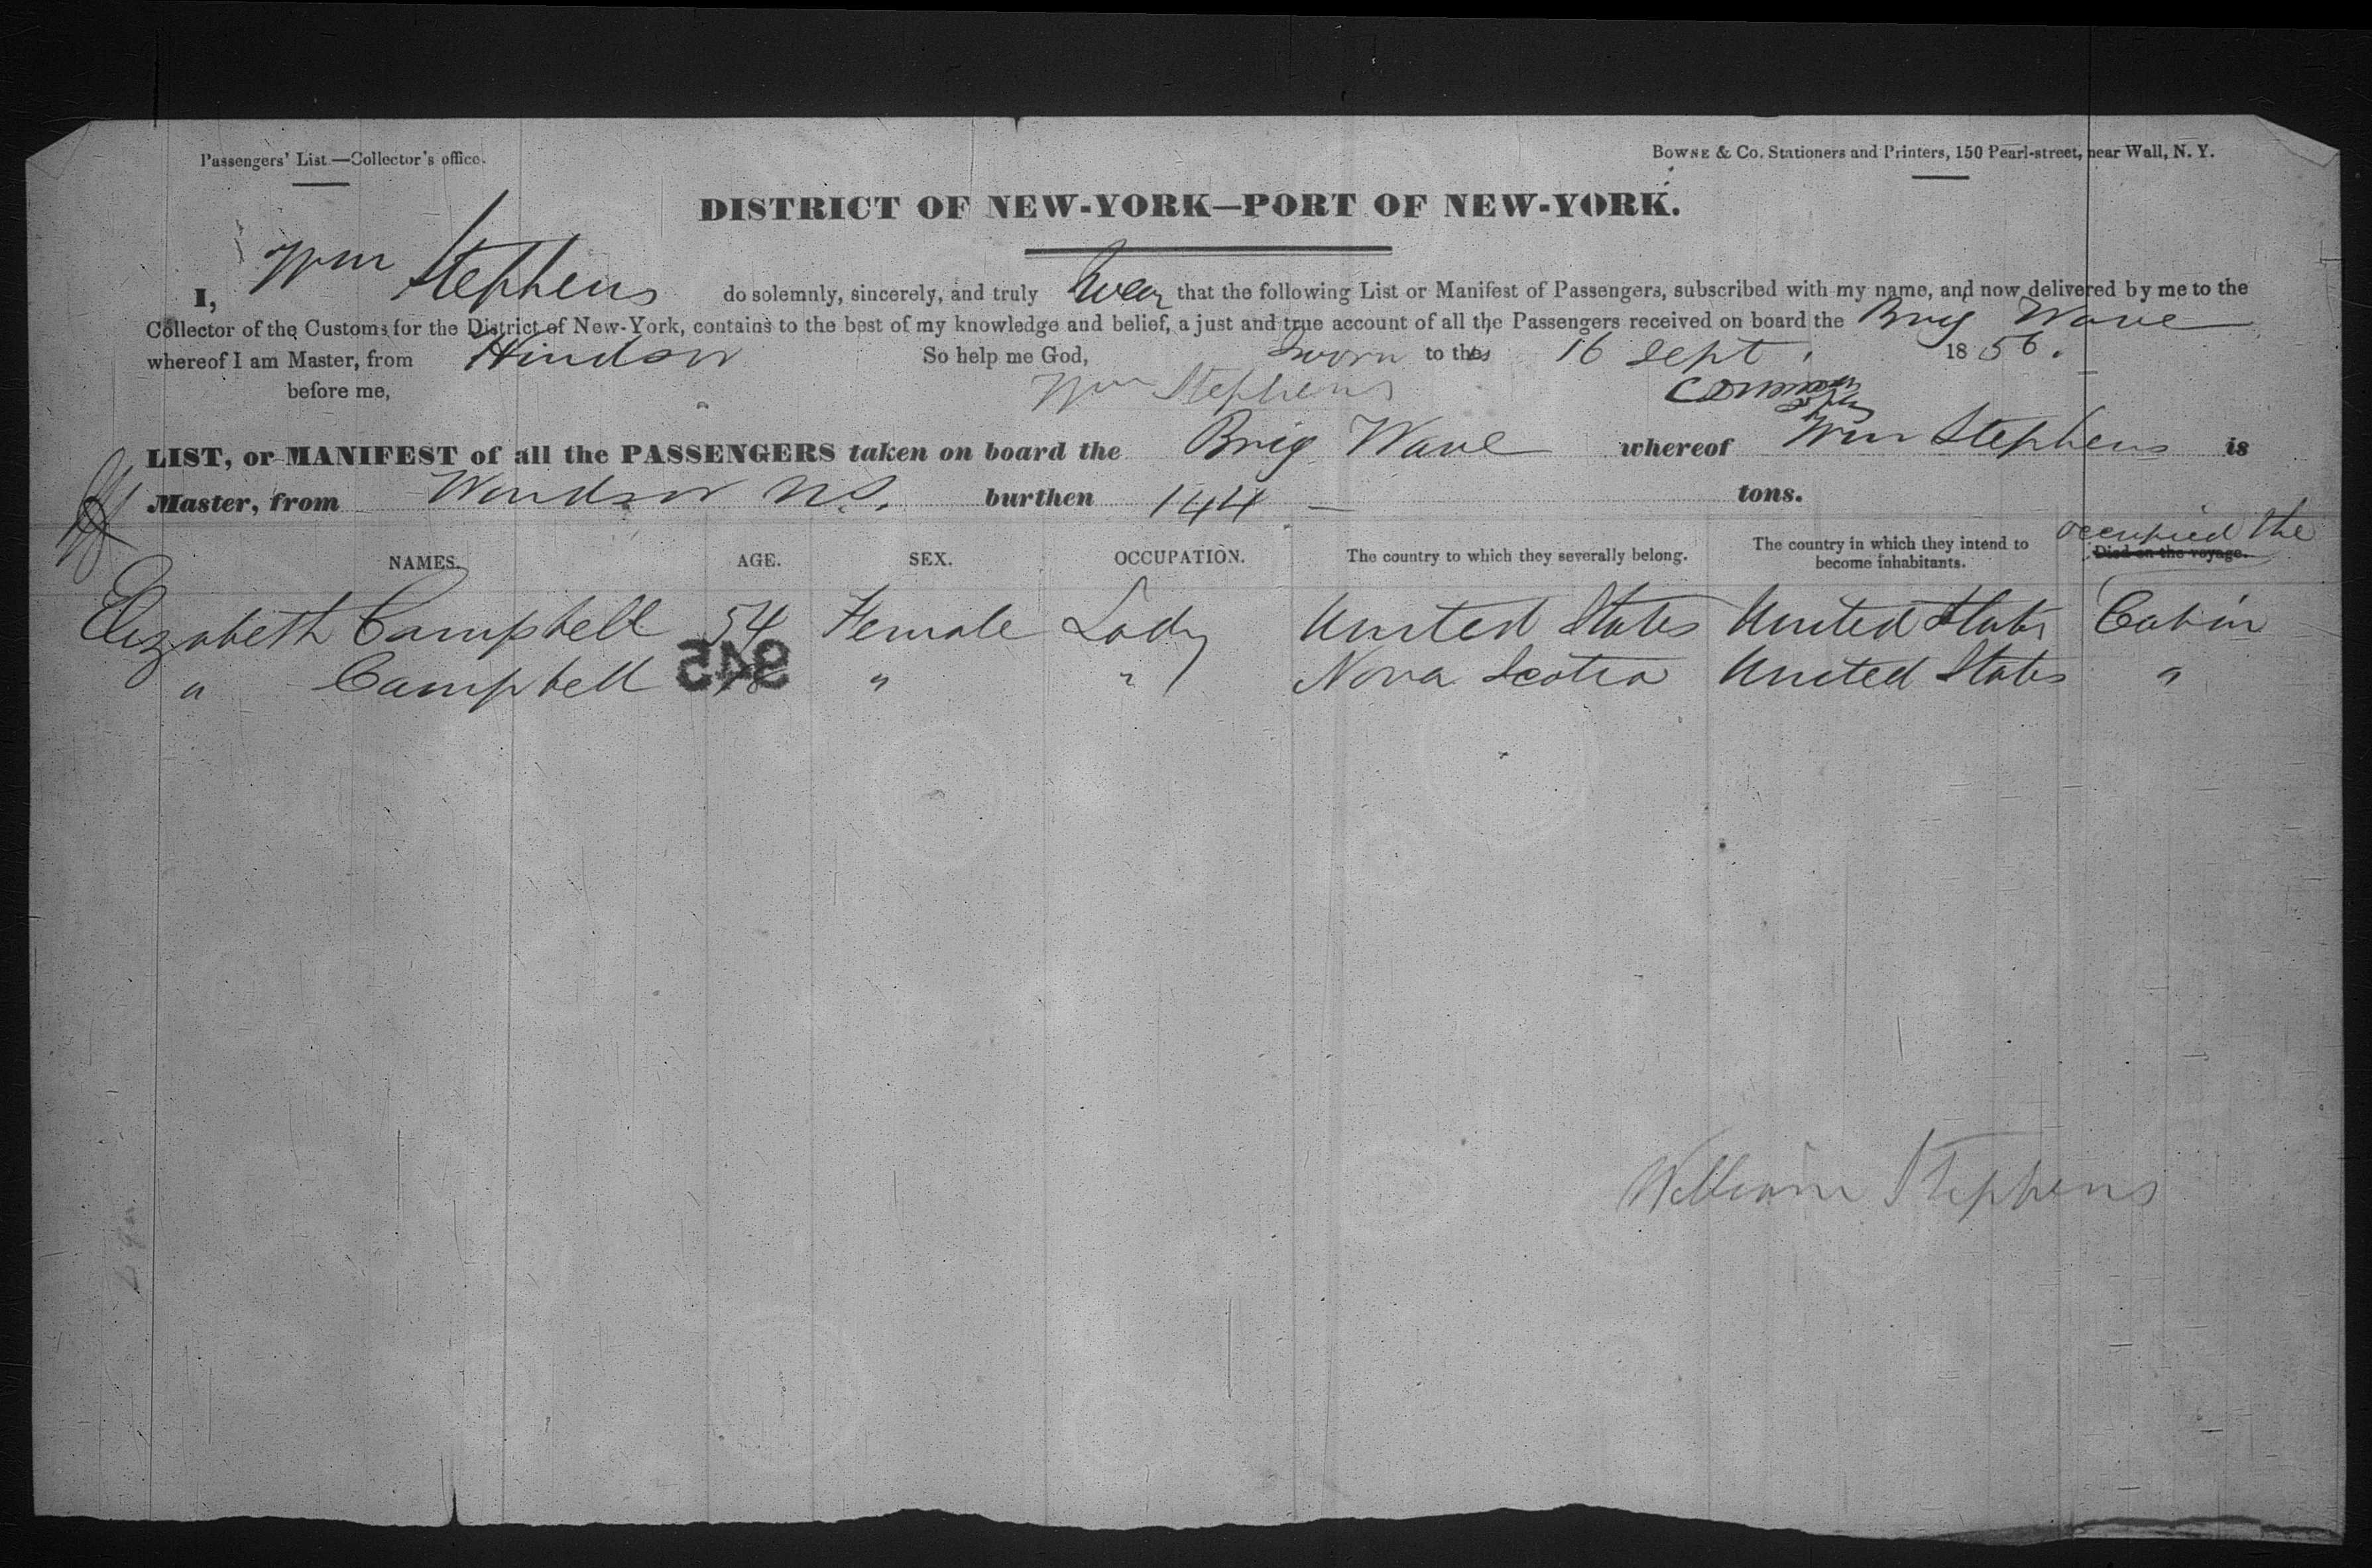 Passengers' List.—Collector's office.
BOWNE & Co. Stationers and Printers, 150 Pearl-street, near Wall, N. Y.
DISTRICT OF NEW-YORK—PORT OF NEW-YORK.
I, Wm Stephens do solemnly, sincerely, and truly swear that the following List or Manifest of Passengers, subscribed with my name, and now delivered by me to the
Collector of the Customs for the District of New-York, contains to the best of my knowledge and belief, a just and true account of all the Passengers received on board the Brig Wave
whereof I am Master, from Windsor So help me God, Sworn to this 16 Sept. 1856.
before me, Wm Stephens
LIST, or MANIFEST of all the PASSENGERS taken on board the Brig Wave whereof Wm Stephens is
Master, from Windsor N.S. burthen 144 — tons.
NAMES. AGE. SEX. OCCUPATION. The country to which they severally belong. The country in which they intend to become inhabitants. occupied the Died on the voyage.
Elizabeth Campbell 54 Female Lady United States United States Cabin
" Campbell " " Nova Scotia United States "
945
William Stephens